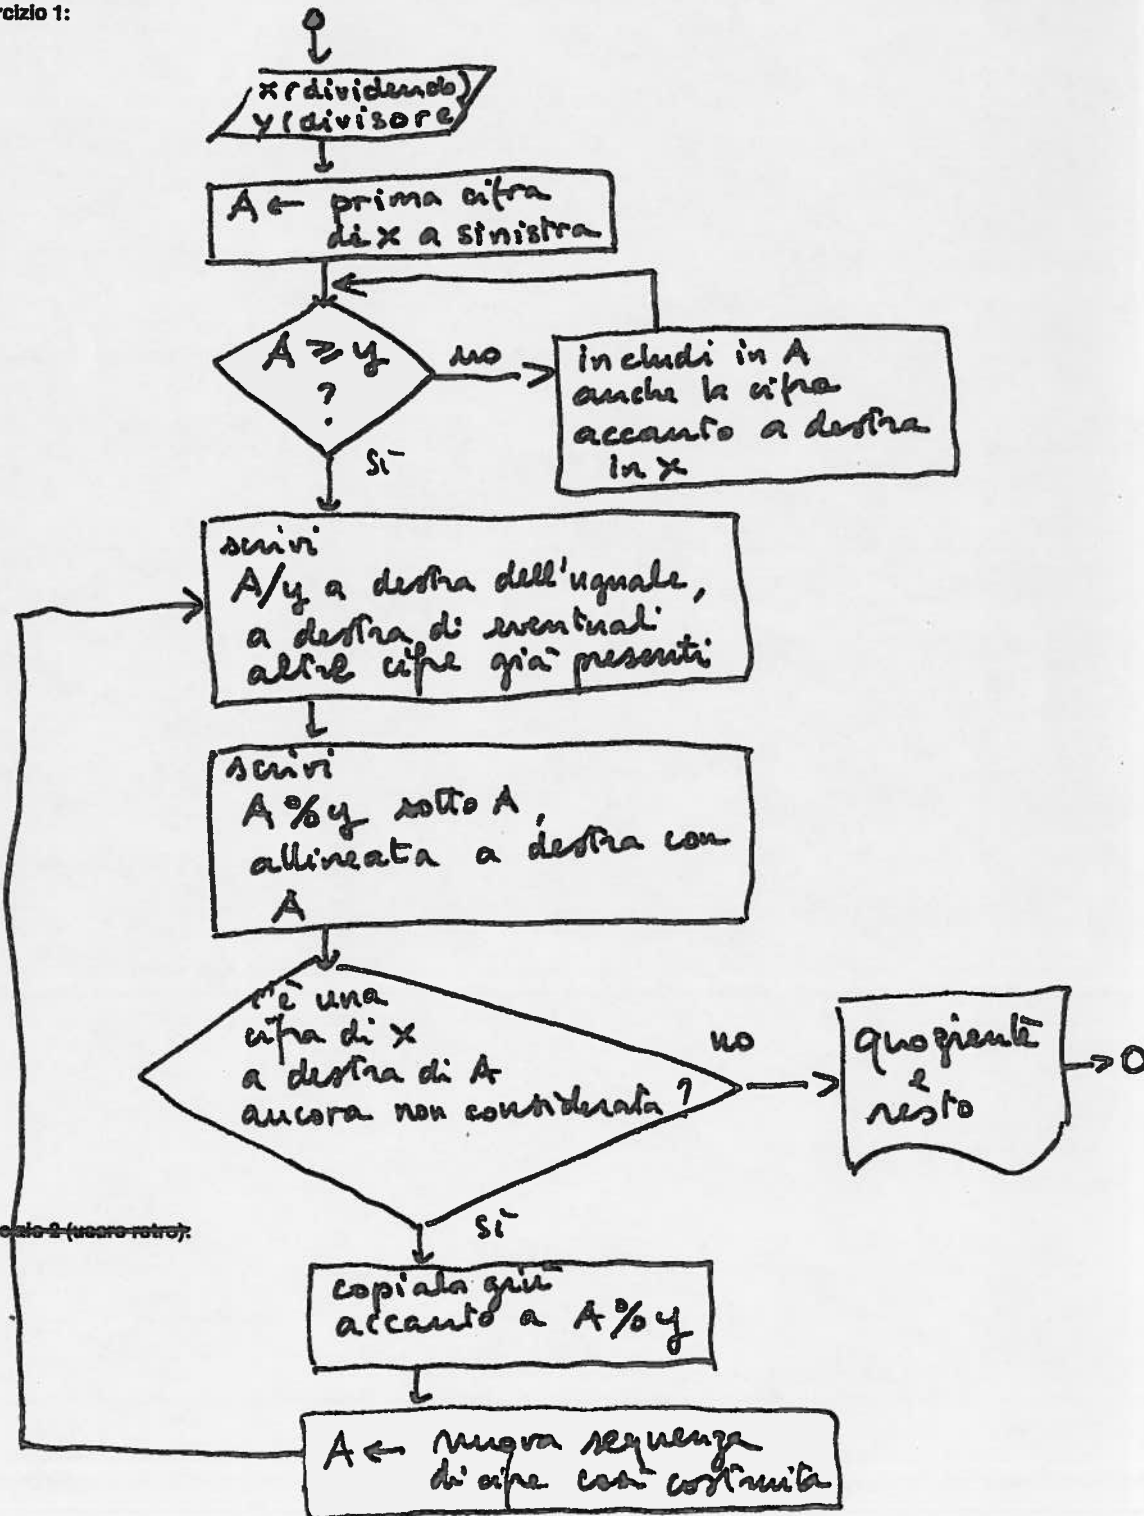 rcizio 1:
x (dividendo)
y (divisore)
A ← prima cifra
di x a sinistra
A ≥ y
?
no
includi in A
anche la cifra
accanto a destra
in x
sì
scrivi
A/y a destra dell'uguale,
a destra di eventuali
altre cifre già presenti
scrivi
A%y sotto A,
allineata a destra con
A
c'è una
cifra di x
a destra di A
ancora non considerata ?
no
quoziente
e
resto
sì
rcizio 2 (usare retro):
copiala giù
accanto a A%y
A ← nuova sequenza
di cifre così costruita